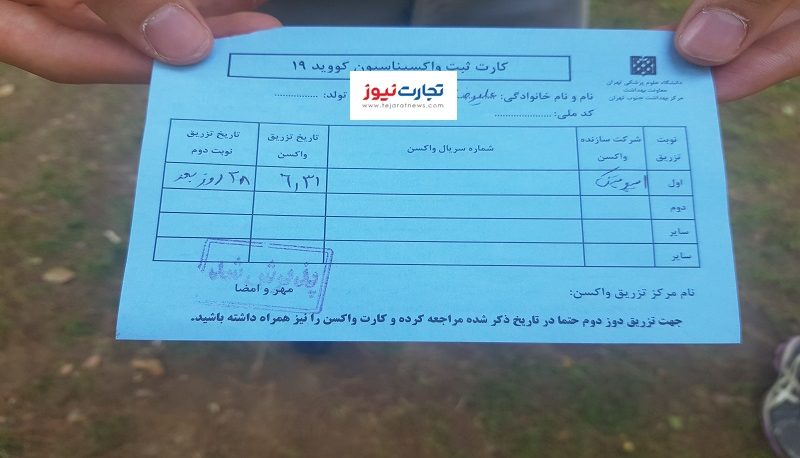 کارت ثبت واکسیناسیون کووید ۱۹
دانشگاه علوم پزشکی تهران
معاونت بهداشت
مرکز بهداشت جنوب تهران
نام و نام خانوادگی: تولد: ................
کد ملی: .....................
تجارت‌نیوز
www.tejaratnews.com
نوبت تزریق شرکت سازنده واکسن شماره سریال واکسن تاریخ تزریق واکسن تاریخ تزریق نوبت دوم
اول ۶,۳۱ ۲۸ روز بعد
دوم
سایر
سایر
نام مرکز تزریق واکسن:
مهر و امضا
جهت تزریق دوز دوم حتما در تاریخ ذکر شده مراجعه کرده و کارت واکسن را نیز همراه داشته باشید.